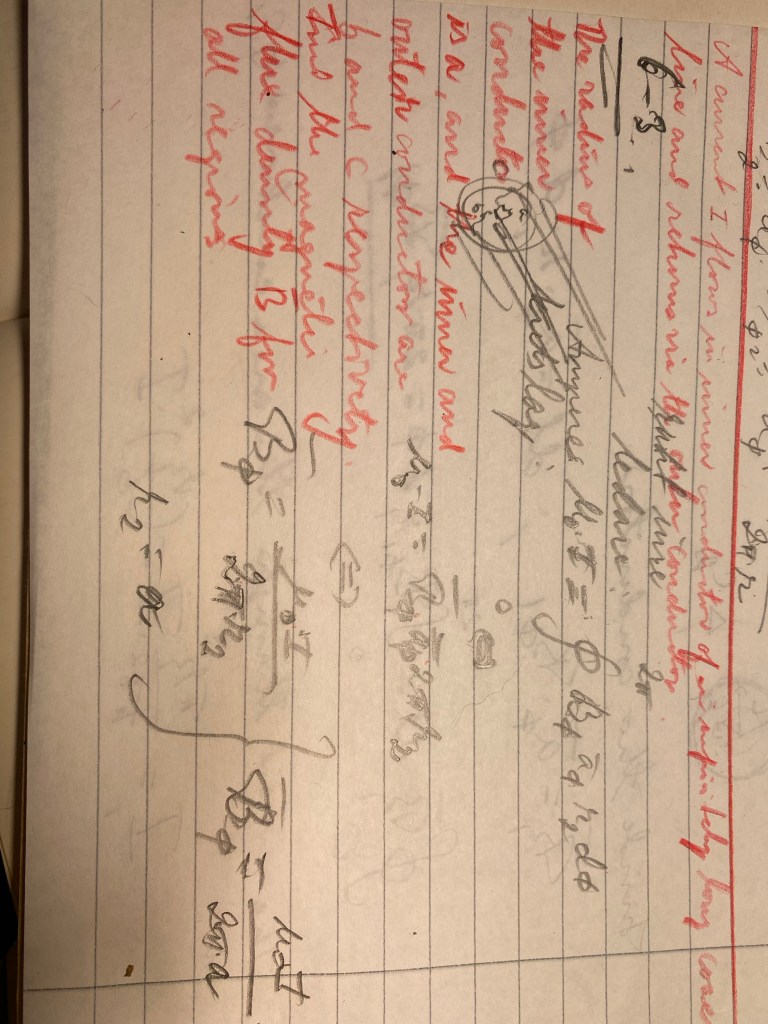 2π r
A current I flows in inner conductor of an infinitely long coax
line and returns via the outer conductor
6-3.
The radius of
the inner
conductor
is a, and the inner and
outer conductor are
b and c respectively.
Find the magnetic
flux density B for
all regions
Amperes
μ₀ I = ∮ B_φ a_φ r₂ dφ
2π
0
μ₀ I = B_φ a_φ 2π r₂
B_φ = μ₀ I / 2π r₂
r₂ = a
B_φ = μ₀ I / 2π a